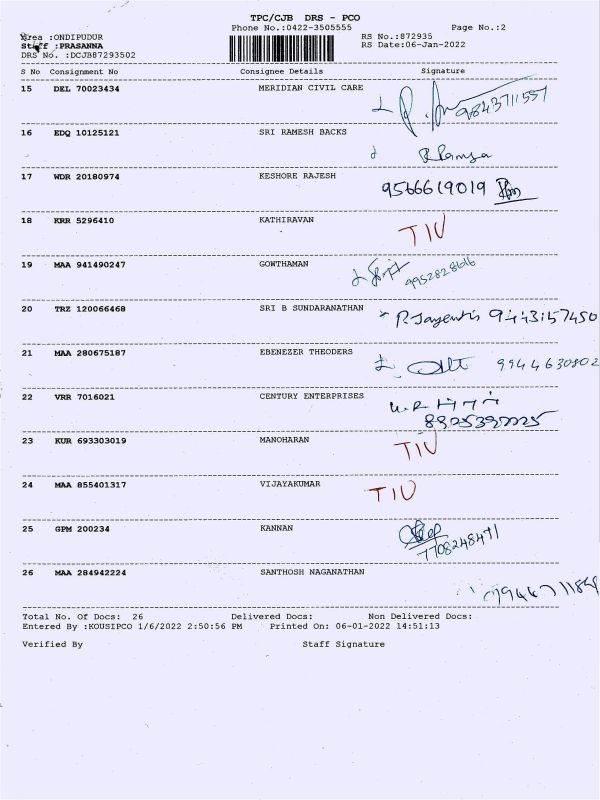 TPC/CJB DRS - PCO
Phone No.:0422-3505555 Page No.:2
Area :ONDIPUDUR RS No.:872935
Staff :PRASANNA RS Date:06-Jan-2022
DRS No. :DCJB87293502
S No Consignment No Consignee Details Signature
15 DEL 70023434 MERIDIAN CIVIL CARE
9843711557
16 EDQ 10125121 SRI RAMESH BACKS
17 WDR 20180974 KESHORE RAJESH
9566619019
18 KRR 5296410 KATHIRAVAN
TIU
19 MAA 941490247 GOWTHAMAN
9952828616
20 TRZ 120066468 SRI B SUNDARANATHAN
9443157450
21 MAA 280675187 EBENEZER THEODERS
9944630802
22 VRR 7016021 CENTURY ENTERPRISES
23 KUR 693303019 MANOHARAN
TIU
24 MAA 855401317 VIJAYAKUMAR
TIU
25 GPM 200234 KANNAN
7708248471
26 MAA 284942224 SANTHOSH NAGANATHAN
Total No. Of Docs: 26 Delivered Docs: Non Delivered Docs:
Entered By :KOUSIPCO 1/6/2022 2:50:56 PM Printed On: 06-01-2022 14:51:13
Verified By Staff Signature